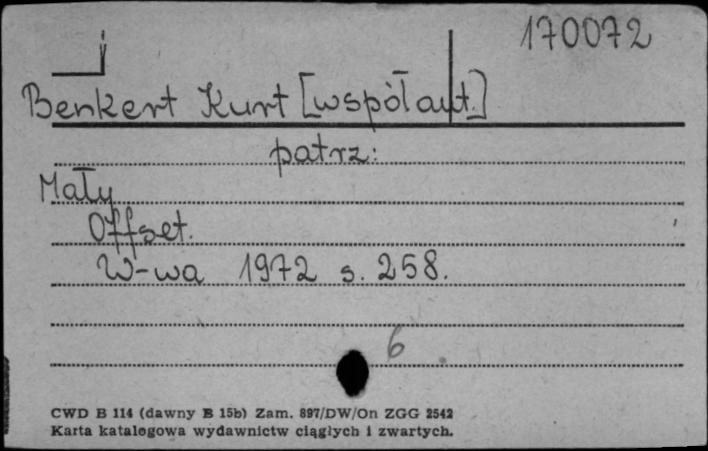 170072
Benkert Kurt [współaut.]
patrz:
Mały
Offset.
W-wa 1972 s. 258.
6
CWD B 114 (dawny B 15b) Zam. 897/DW/On ZGG 2542
Karta katalogowa wydawnictw ciągłych i zwartych.